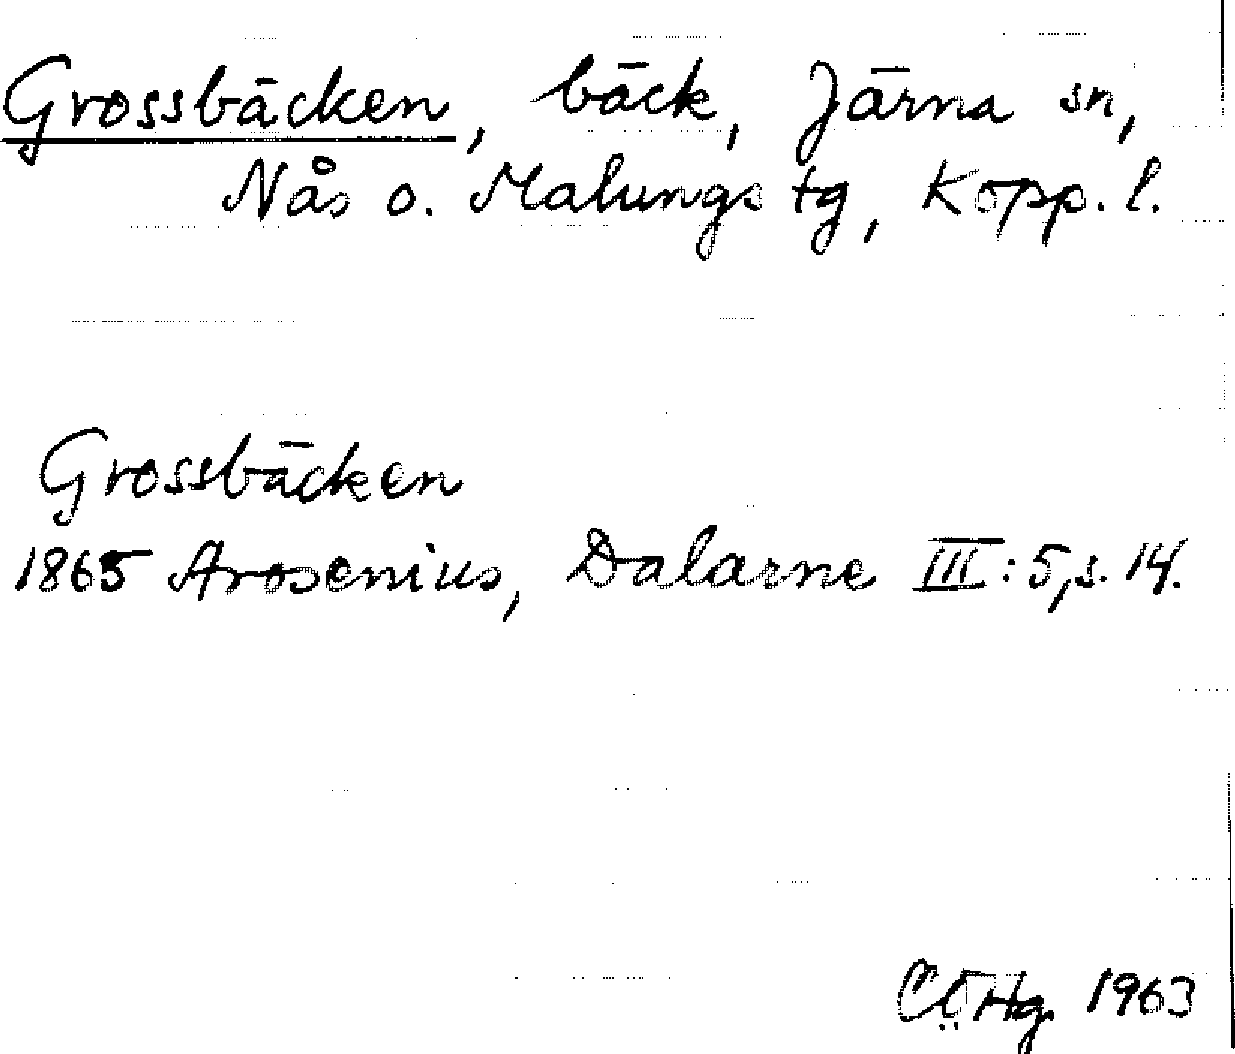 Grossbäcken, bäck, Järna sn,
Nås o. Malungs tg, Kopp. l.
Grossbäcken
1865 Arosenius, Dalarne III: 5, s. 14.
1963